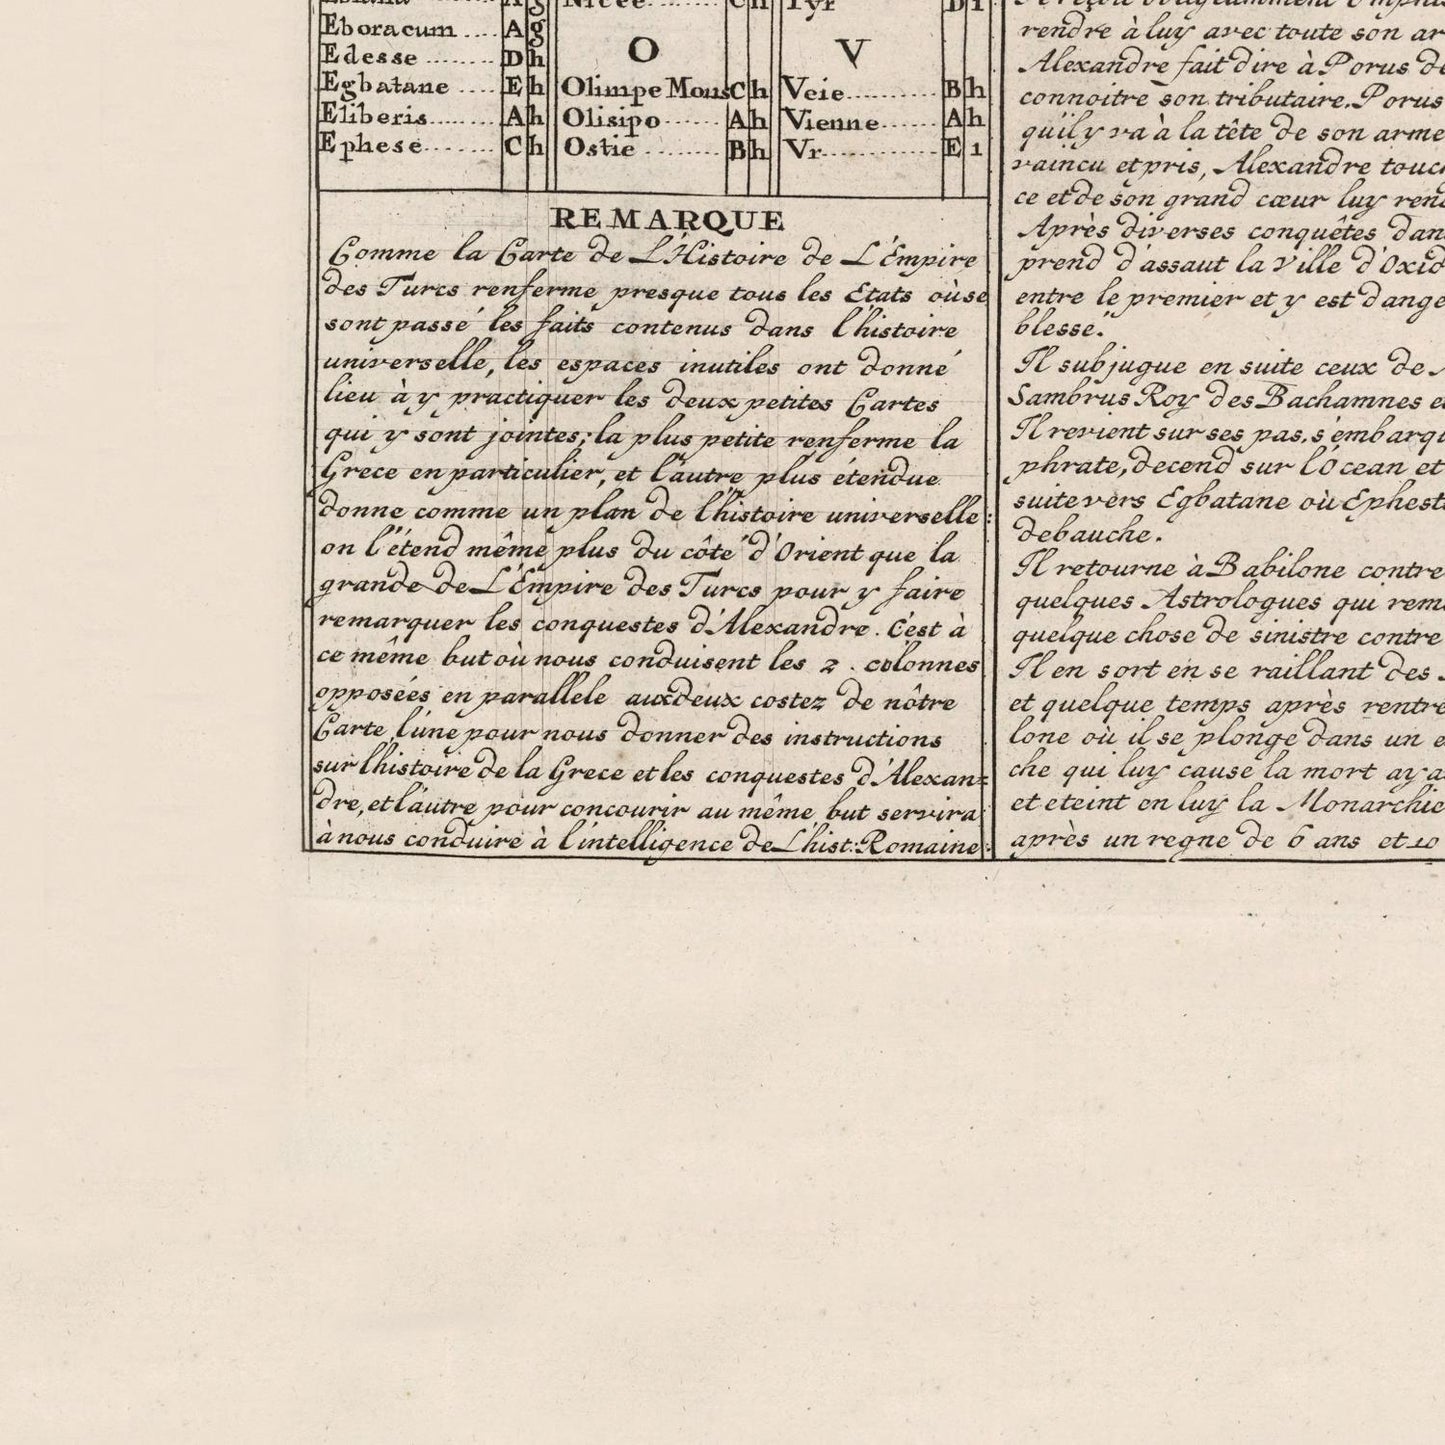 Nicée Ch Tyr D1
Eboracum Ag
Edesse Dh O V
Egbatane Eh Olimpe Mons Ch Veie Bh
Eliberis Ah Olisipo Ah Vienne Ah
Ephese Ch Ostie Bh Vr E1
REMARQUE
Comme la Carte de L'Histoire de L'Empire
des Turcs renferme presque tous les Etats où se
sont passé les faits contenus dans l'histoire
universelle, les espaces inutiles ont donné
lieu à y practiquer les deux petites Cartes
qui y sont jointes; la plus petite renferme la
Grece en particulier, et l'autre plus étendue
donne comme un plan de l'histoire universelle:
on l'étend même plus du côté d'Orient que la
grande de L'Empire des Turcs pour y faire
remarquer les conquestes d'Alexandre. C'est à
ce même but où nous conduisent les 2. colonnes
opposées en parallele aux deux costez de nôtre
Carte l'une pour nous donner des instructions
sur l'histoire de la Grece et les conquestes d'Alexan=
dre, et l'autre pour concourir au même but servira
à nous conduire à l'intelligence de L'hist: Romaine:
rendre à luy avec toute son ar
Alexandre fait dire à Porus de
connoitre son tributaire. Porus
qu'il y va à la tête de son arme
vaincu et pris, Alexandre touc
ce et de son grand cœur luy ren
Après diverses conquêtes dan
prend d'assaut la Ville d'Oxid
entre le premier et y est dange
blessé.
Il subjugue en suite ceux de
Sambrus Roy des Bachamnes e
Il revient sur ses pas, s'embarq
phrate, decend sur l'Ocean et
suite vers Egbatane où Ephest
debauche.
Il retourne à Babilone contre
quelques Astrologues qui rem
quelque chose de sinistre contre
Il en sort en se raillant des
et quelque temps après rentre
lone où il se plonge dans un e
che qui luy cause la mort aya
et eteint en luy la Monarchie
après un regne de 6 ans et 10